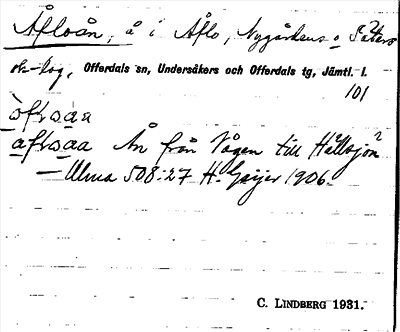 Åfloån, å i Åflo, Nygårdens o
sk-lag, Offerdals sn, Undersåkers och Offerdals tg, Jämtl. l.
101
Ån från Vågen till Hällsjön?
— Ulma 508:27 H. Geijer 1906.
C. LINDBERG 1931.